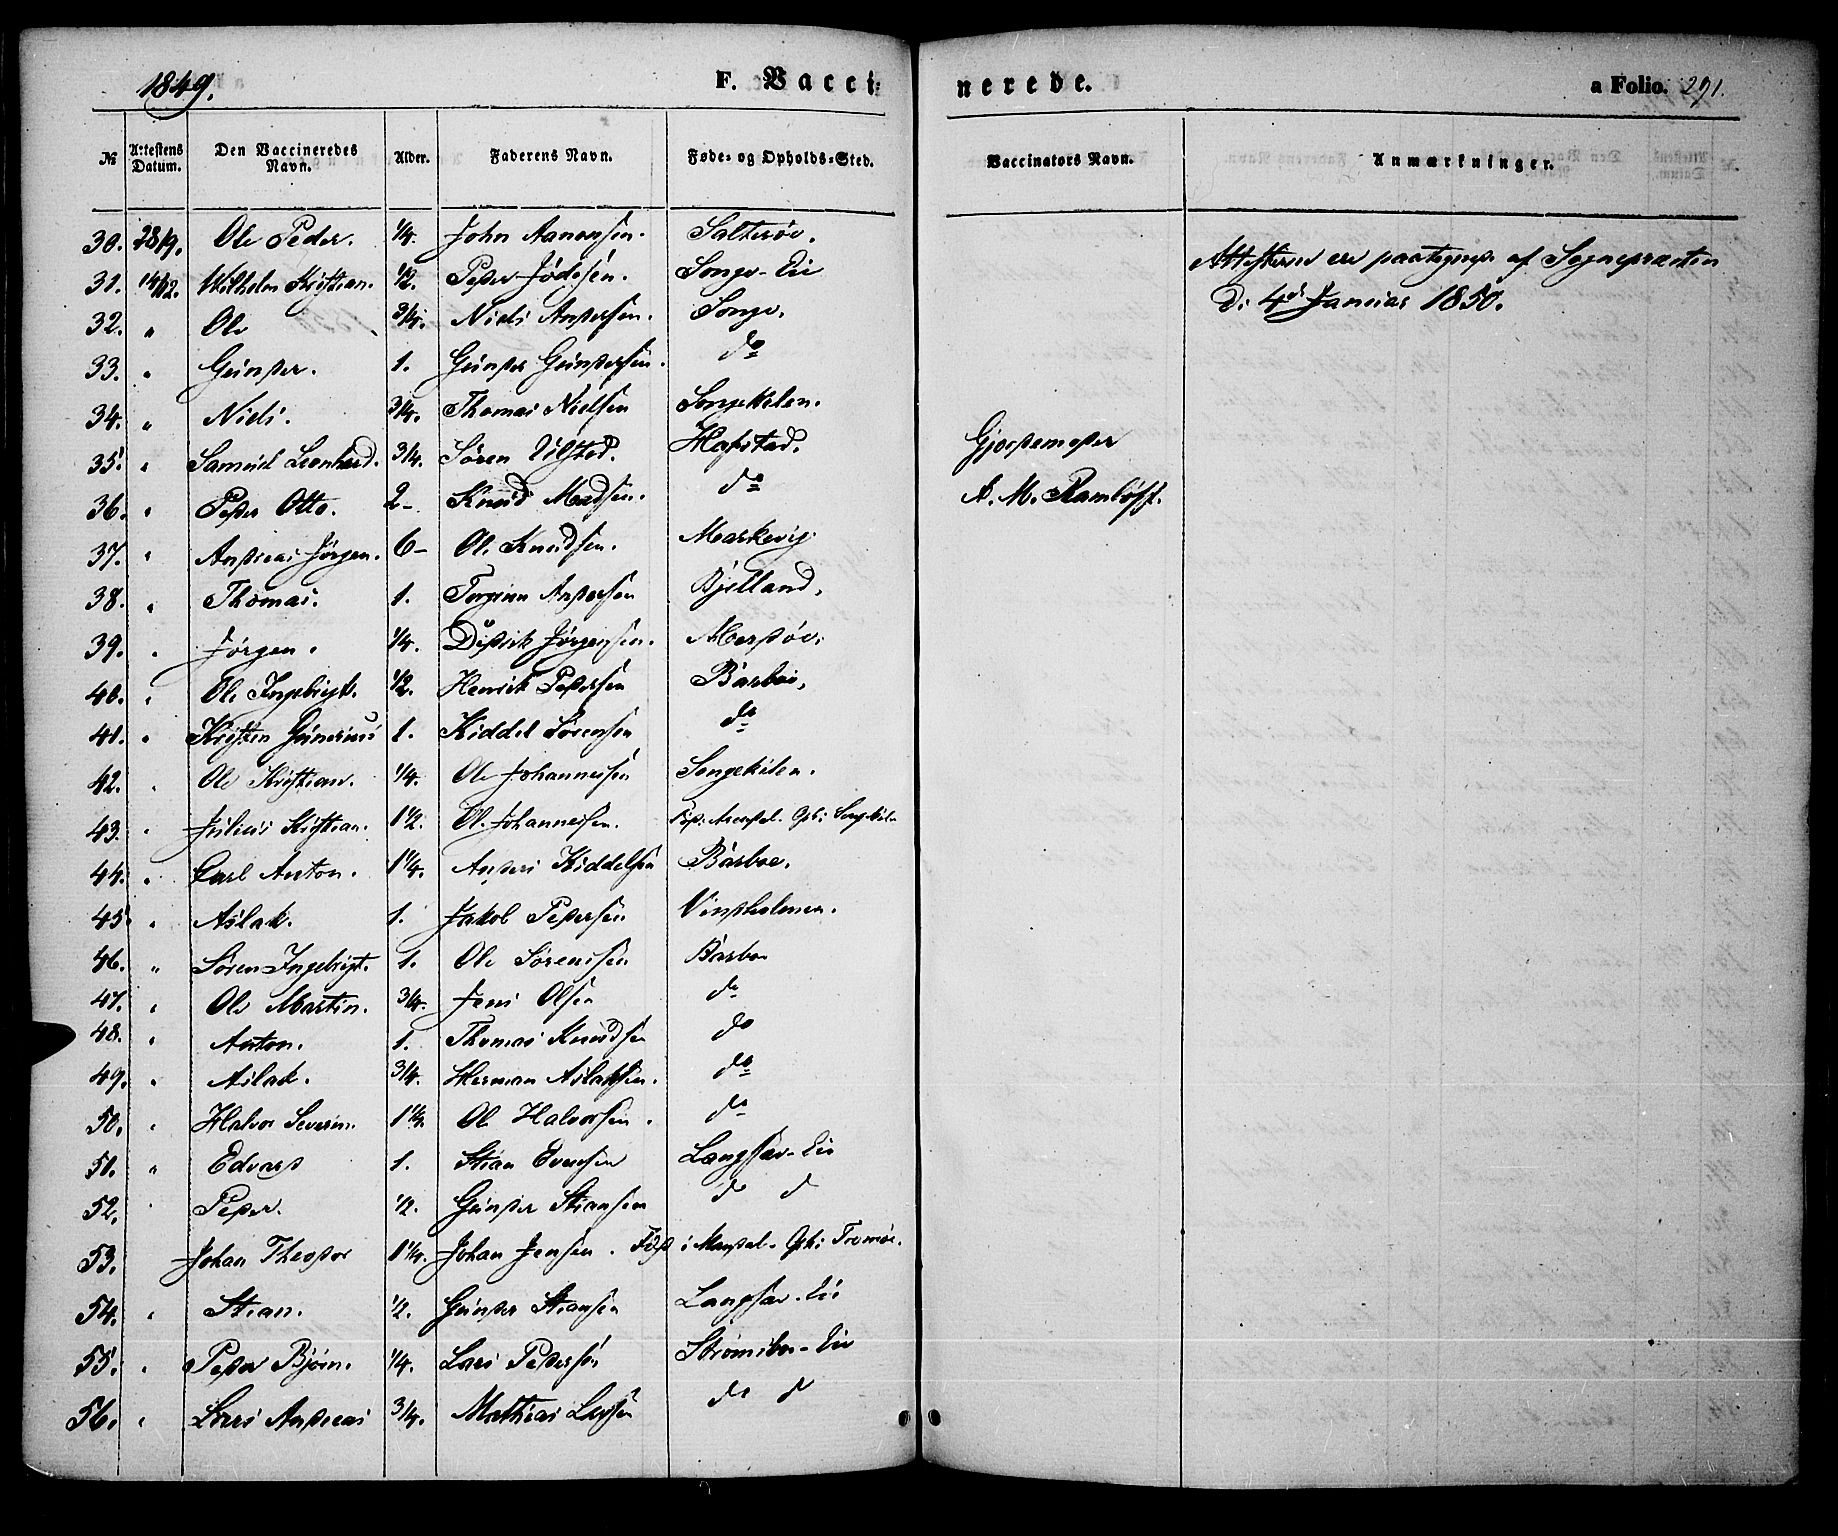 1849.
F. Vacci=
nerede.
a Folio. 291.
№ Attestens Datum. Den Vaccineredes Navn. Alder. Faderens Navn. Føde- og Opholds-Sted. Vaccinators Navn. Anmærkninger.
30. 28/9. Ole Peder. 1/4. John Aanonsen. Salterøe.
Attesterne ere paategnede af Sognepræsten
31. 14/12. Wilhelm Kristian. 1/2. Peder Jödesen. Songe-Eie
D: 4de Januar 1850.
32. " Ole 3/4. Niels Andersen. Songe.
33. " Gunder. 1. Gunder Gundersen. do
34. " Niels. 3/4. Thomas Nielsen Songekilen.
35. " Samuel Leonhard. 3/4. Sören Ulsted. Hafstad.
Gjordemoder
36. " Peder Otto. 2- Knud Madsen. do
A. M. Ramløff.
37. " Andreas Jørgen. 6- Ole Knudsen. Markevig
38. " Thomas. 1. Torgrim Andersen Bjelland.
39. " Jørgen. 1/4. Didrik Jørgensen. Merdöe.
40. " Ole Ingebrigt. 1/2. Henrik Pedersen Barboe,
41. " Kristen Gunerius 1. Kiddel Sørensen do
42. " Ole Kristian. 1/4. Ole Johannesen Songekilen.
43. " Julius Kristian. 1 1/2. Ole Johannesen. Fød: Arendal. Oph: Songekilen
44. " Carl Anton. 1 1/4. Anders Kiddelsen Barboe.
45. " Aslak. 1. Jakob Pedersen Vindholmen.
46. " Sören Ingebrigt. 1. Ole Sørensen Barboe
47. " Ole Martin. 3/4. Jens Olsen do
48. " Anton. 1. Thomas Knudsen do
49. " Aslak. 3/4. Herman Aslaksen. do
50. " Halvor Severin. 1 1/4. Ole Halvorsen. do
51. " Edvard 1. Stian Evensen Langsæv-Eie
52. " Peder. 1/2. Gunder Stiansen do do
53. Johan Theodor 1 1/4. Johan Jensen. Fød i Mandal. Oph: Tromøe.
54. " Stian. 1/2. Gunder Stiansen Langsæv-Eie
55. " Peder Bjørn. 1/4. Lars Pedersen Strømsboe-Eie
56. " Lars Andreas 3/4. Mathias Larsen do do